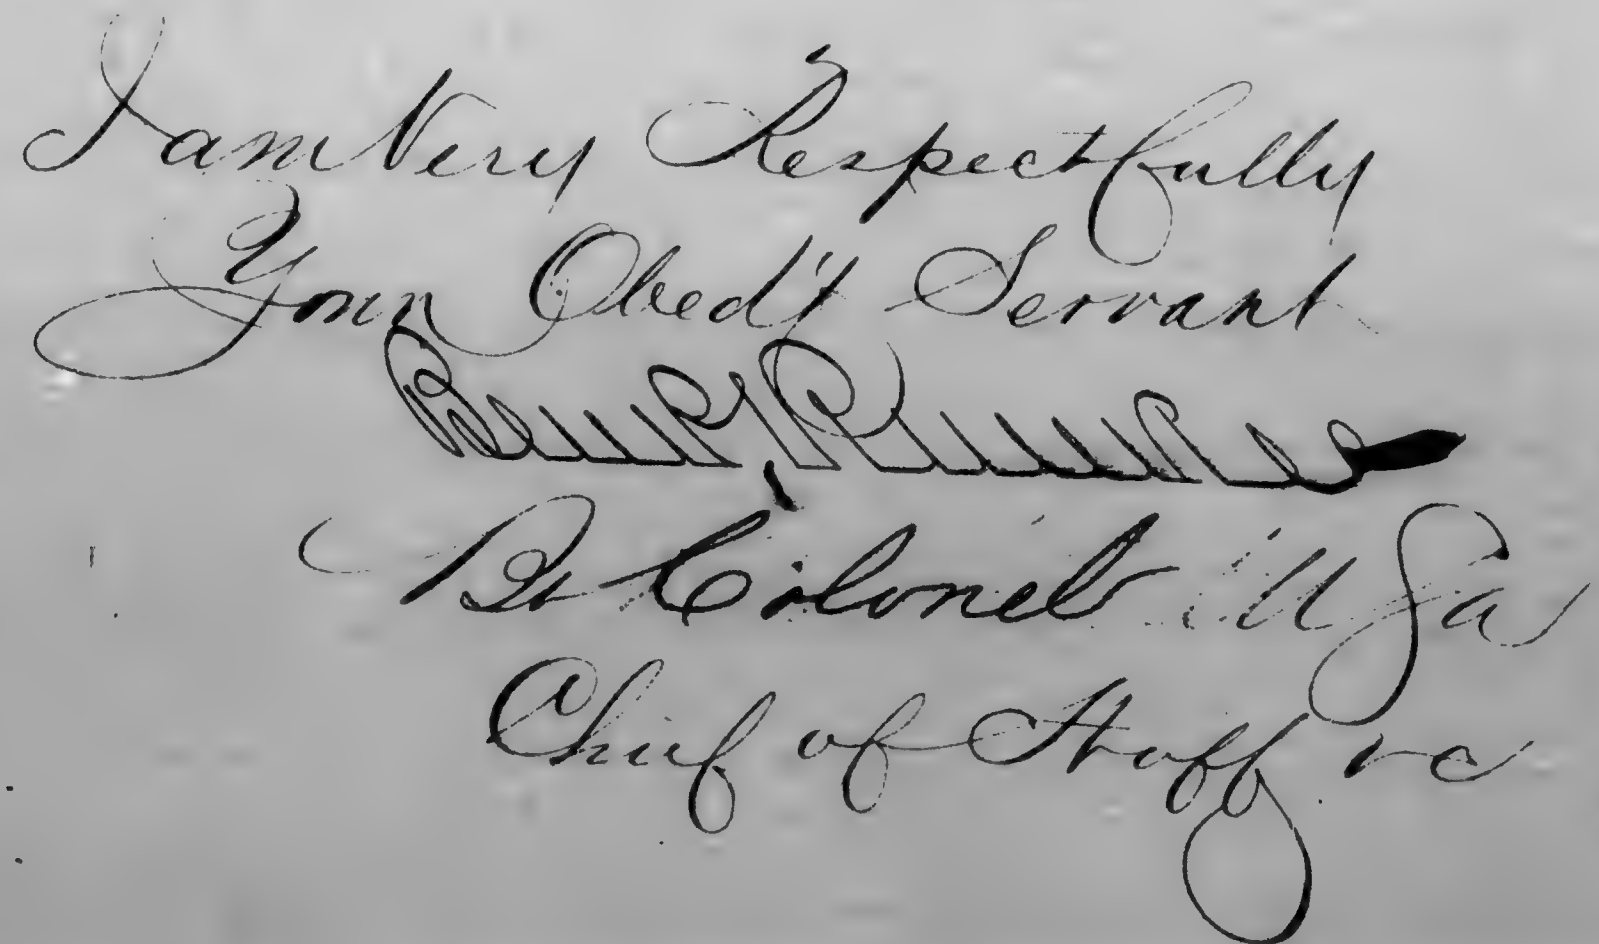 I am Very Respectfully
Your Obed't Servant
Benj. P. Runkle
Bt Colonel U S a
Chief of Staff &c